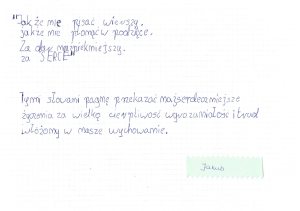 "Jakże nie pisać wierszy.
jakże nie płonąć w podzięce.
Za dar najpiękniejszy.
za SERCE"
Tymi słowami pragnę przekazać najserdeczniejsze
życzenia za wielką cierpliwość wyrozumiałość i trud
włożony w nasze wychowanie.